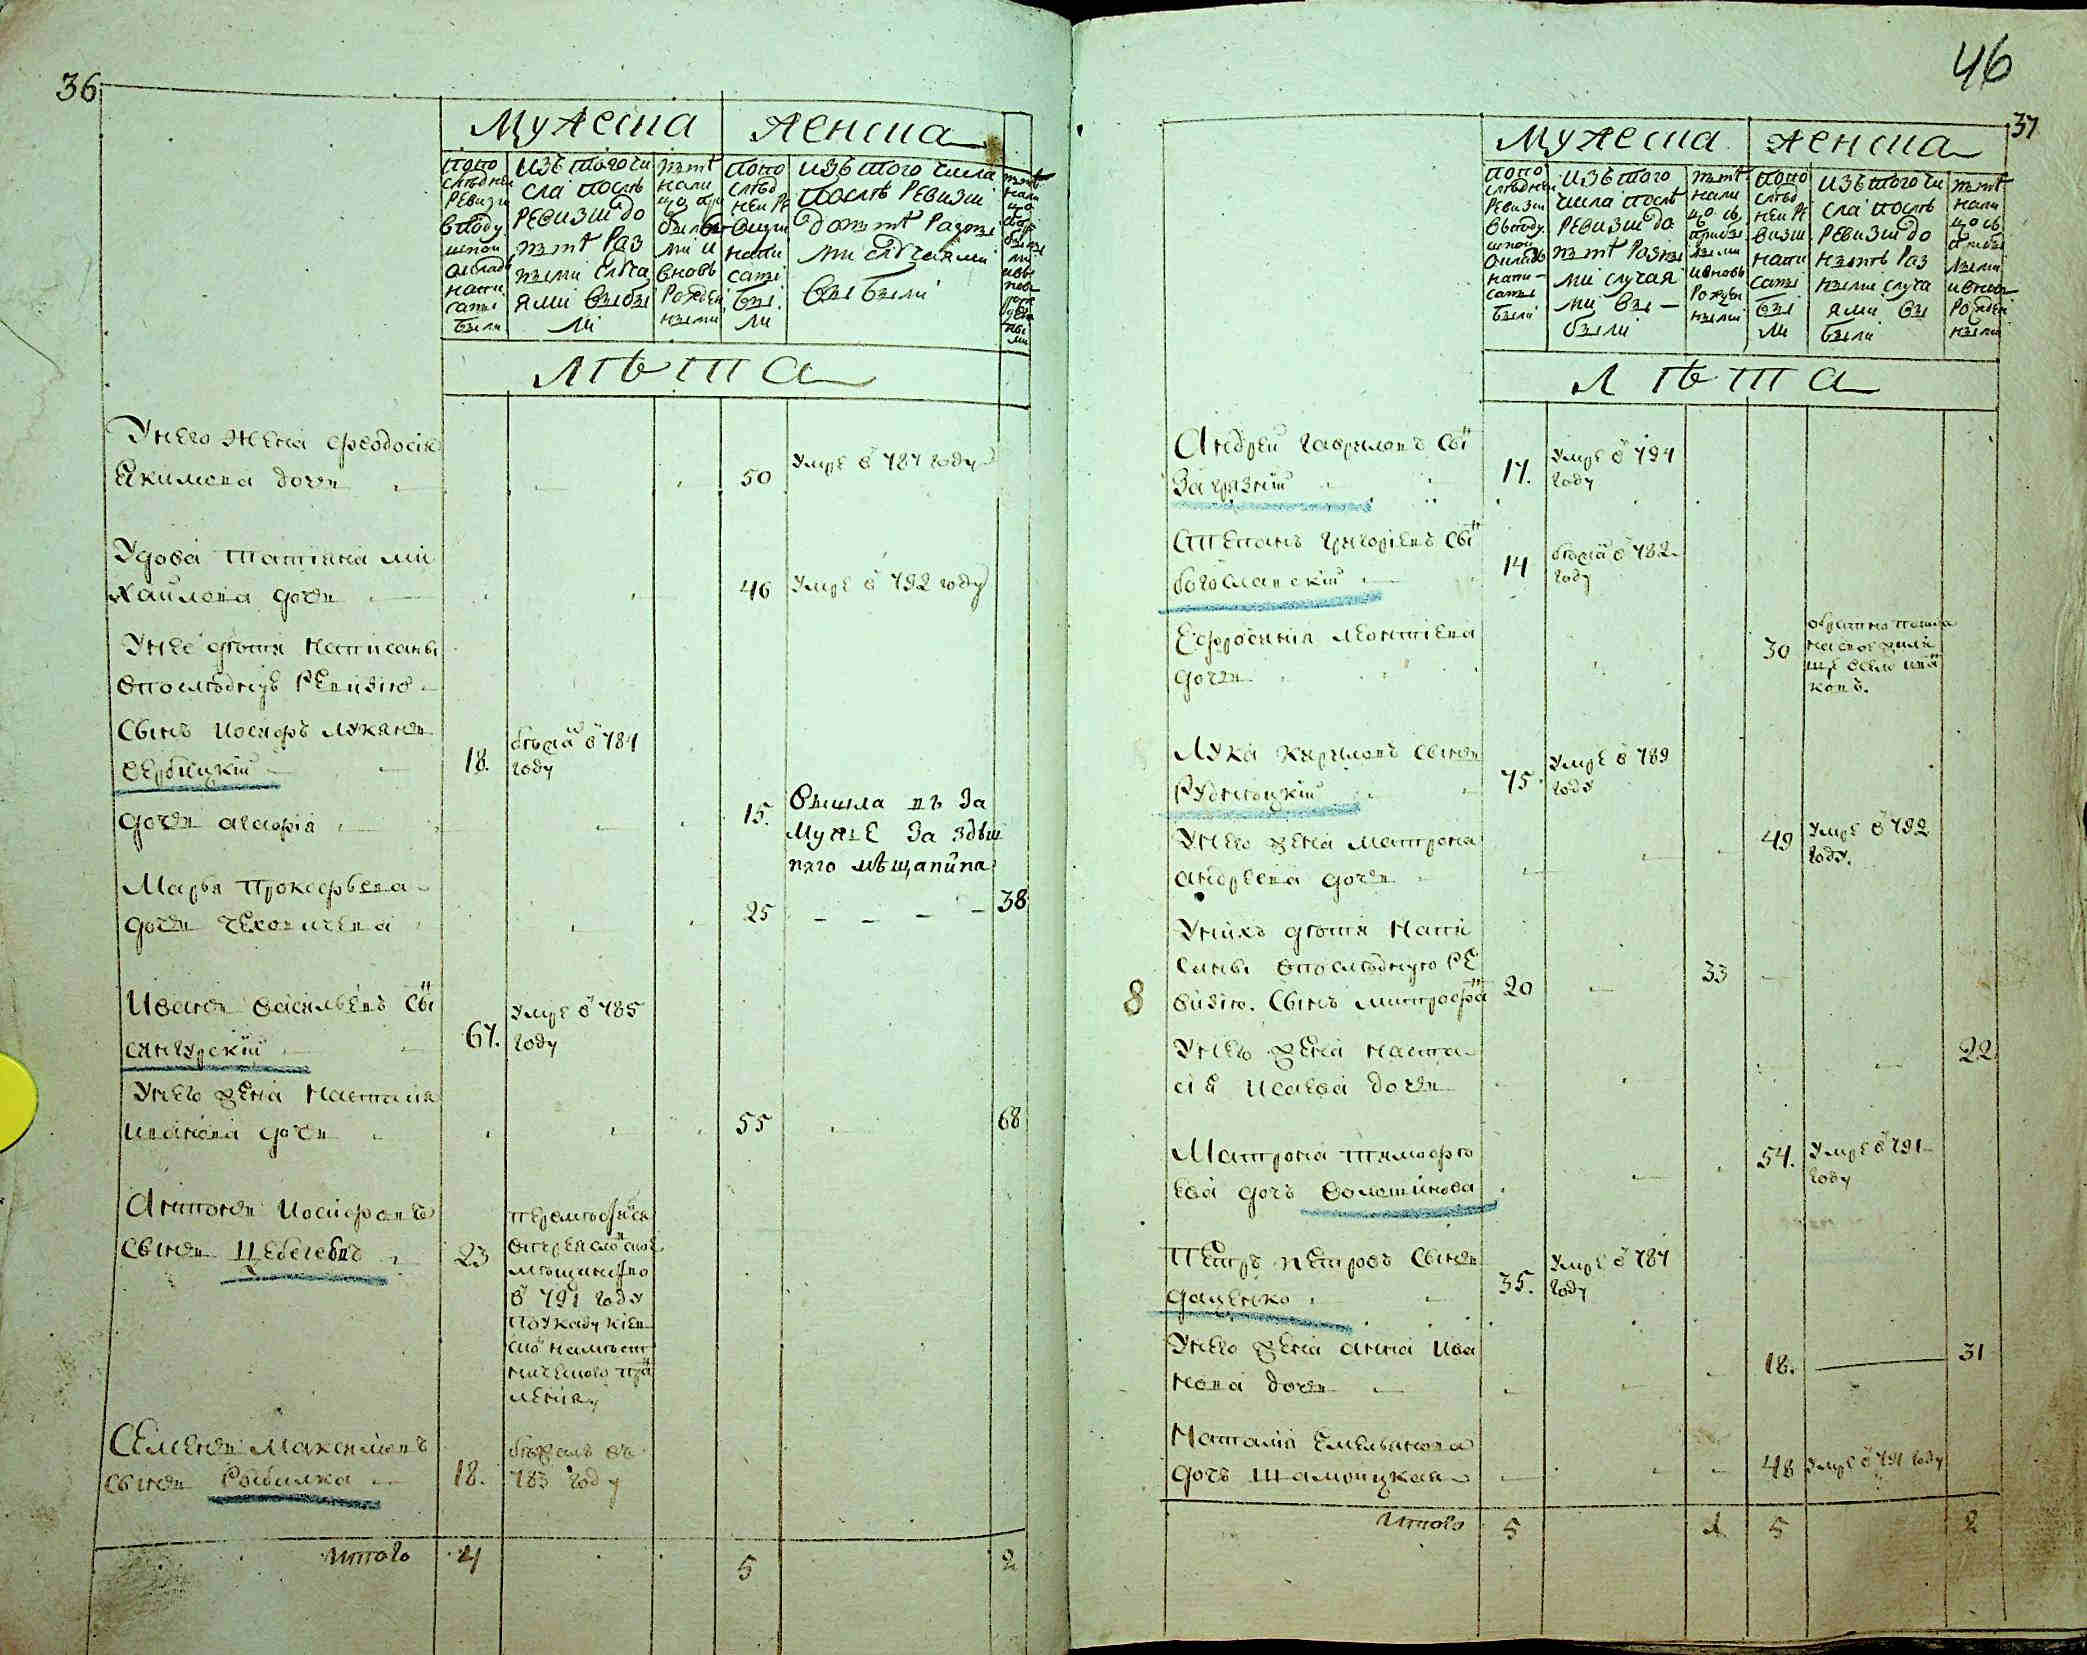 36
Мужеска
Женска
попо
следнеи
ревизи
в поду
шнои
оклад
напи
саны
были
изъ того чи
сла после
ревизии до
ныне раз
ными случа
ями выбы
ли
ныне
нали
цо при
былы
ми и
вновь
рожден
ными
попо
след
неи ре
визии
напи
саны
бы
ли
изъ того числа
после ревизии
до ныне разны
ми случаями
выбыли
лѣта
У него жена Феодосия
Якимова дочь
50
умре в 787 году
Удова Татияна Ми
хайлова дочь
46
умре в 792 году
У нее дети написаны
в последнюю ревизию
Сынъ Иосифъ Лукянъ
Вербицкий
18.
бежа в 784
году
дочь Агафия
15.
вышла въ за
муже за здеш
няго мѣщанина
Марья Прокофьева
дочь Чеховичева
25
38
Иванъ Васильевъ сы
Сангурский
67.
умре в 785
году
У него жена Настасия
Иванова дочь
55
68
Антонъ Иосифовъ
сынъ Цебелевич
23
в 791 году
по указу киев
ско наместни
ническаго пра
Семенъ Максимовъ
сынъ Рыбалка
18.
бежалъ въ
783 году
Итого
4
5
2
46
37
Мужеска
Женска
попо
следнеи
ревизии
в поду
шнои
окладъ
напи-
саны
были
изъ того
числа после
ревизии до
ныне разны
ми случая
ми вы-
были
ныне
нали
цо съ
прибы
лыми
и вновь
рожде
ными
попо
след
неи ре
визии
напи
саны
бы
ли
изъ того чи
сла после
ревизии до
ныне раз
ными случа
ями вы
были
ныне
нали
цо съ
прибы
лыми
и вновь
рожден
ными
лѣта
Андрей Гаврилов сы
Загразкий
17.
умре в 794
году
Степанъ Григориевъ сы
Богославский
14
бежа в 782
году
Ефросиния Леонтиева
дочь
30
Лука Кириловъ сынъ
Рудницкий
75.
умре в 789
году
У него жена Матрона
Андреева дочь
49
умре в 792
году.
У нихъ дети напи
саны в последнюю ре
визию. Сынъ Митрофа
8
20
33
У него жена Наста-
сия Исаева дочь
22
Матрона Тимофе
ева дочь Волошинова
54.
умре в 791
году
Петръ Петровъ сынъ
Даценко
35.
умре в 787
году
У него жена Анна Ива
нова дочь
18.
31
Наталия Емельянова
дочь Шамрицкая
48
умре в 791 году
Итого
5
1
5
2